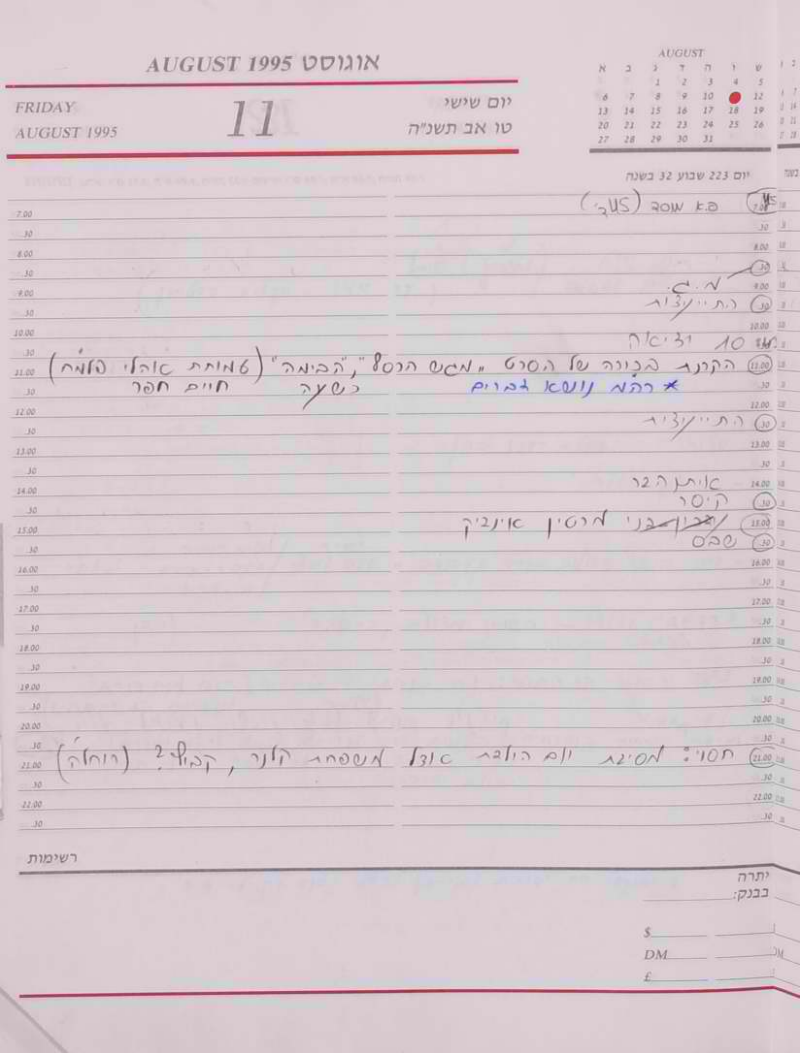 AUGUST 1995 אוגוסט
FRIDAY
AUGUST 1995
11
יום שישי
טו אב תשנ"ה
AUGUST
א ב ג ד ה ו ש
1 2 3 4 5
6 7 8 9 10 12
13 14 15 16 17 18 19
20 21 22 23 24 25 26
27 28 29 30 31
יום 223 שבוע 32 בשנה
7.00 (US) מוסד
.30
8.00
.30
9.00 מ.ג.
.30 התייעצות
10.00
.30 10 יציאה
11.00 הקרנת בכורה של הסרט "מגש הכסף", "הבימה" (עמותת אוהלי פלמ"ח)
.30 * רה"מ נושא דברים כשעה חיים חפר
12.00
.30 התייעצות
13.00
.30
14.00 איתן הבר
.30 קיסר
15.00 מרטין אינדיק
.30 שבס
16.00
.30
17.00
.30
18.00
.30
19.00
.30
20.00
.30
21.00 חסוי: מסיבת יום הולדת אצל משפחת קלנר, (רוחל'ה)
.30
22.00
.30
רשימות
יתרה
בבנק:
$
DM
£